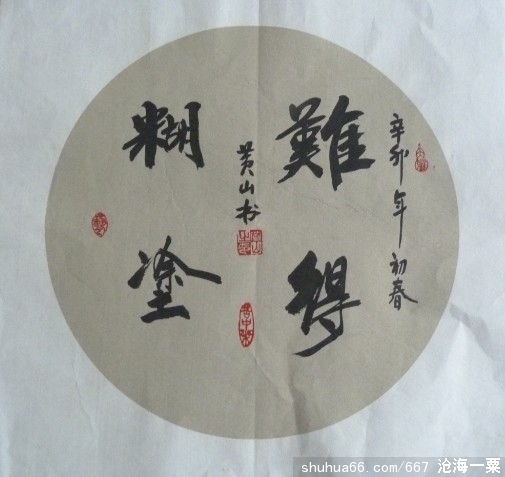 辛卯年初春
難得
黄山
糊塗
shuhua66.com/667 沧海一粟